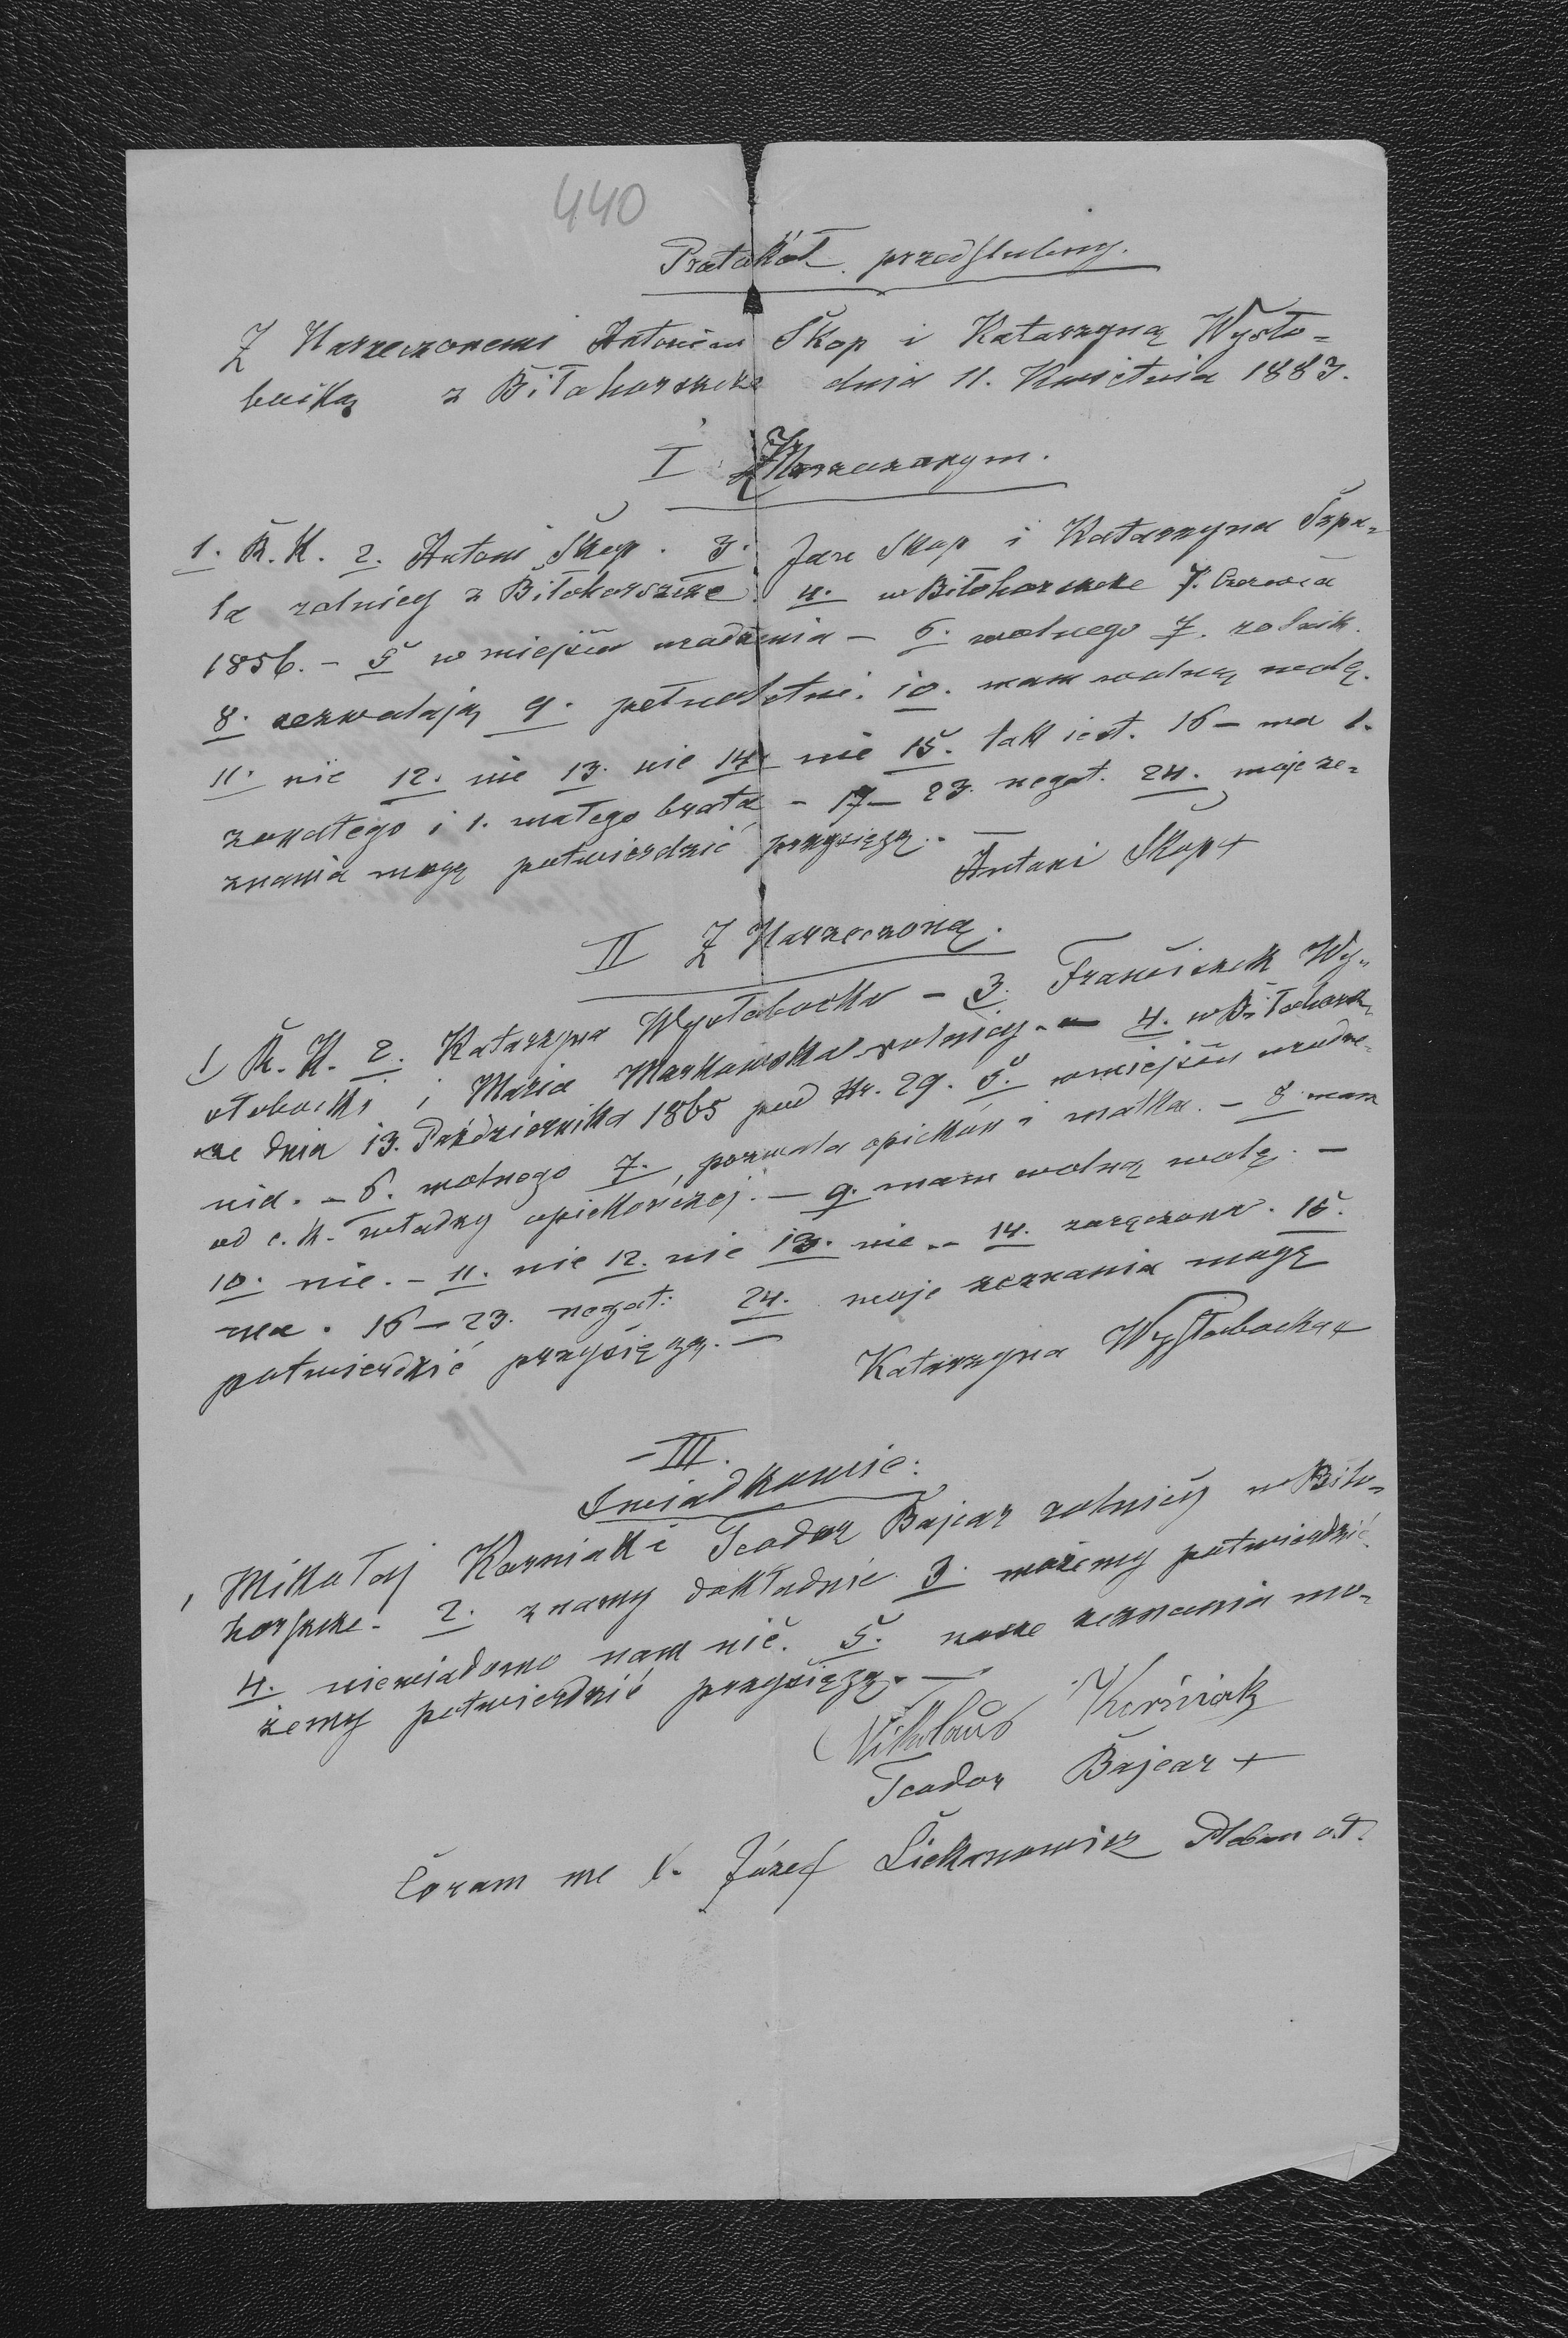 440
Protokół przedślubny.
Z Narzeczonemi Antonim Skop i Katarzyną Wysło=
bocką z Biłohorszcze dnia 11. Kwietnia 1883.
I Z Narzeczonym.
1. R. K. 2. Antoni Skop. 3. Jan Skop i Katarzyna Szpa=
ła rolnicy z Biłohorszcze. 4. w Biłohorszcze 7. Czerwca
1856. – 5 w miejscu urodzenia – 6. wolnego 7. rolnik.
8. zezwalają 9. pełnoletni. 10. mam wolną wolę.
11. nie 12. nie 13. nie 14. nie 15. tak jest. 16 – ma 1.
żonatego i 1. małego brata – 17 – 23. negat. 24. moje ze=
znania mogę potwierdzić przysięgą. –
Antoni Skop +
II Z Narzeczoną.
1 R. K. 2. Katarzyna Wysłobocka – 3. Franciszek Wy=
słobocki i Maria Markowska rolnicy. – 4. w Biłohorsz
cze dnia 13. Października 1865 pod Nr. 29. 5. w miejscu urodze=
nia. – 6. wolnego 7. pozwala opiekun i matka. – 8 mam
od c. k. władzy opiekuńczej. – 9. mam wolną wolę. –
10. nie. – 11. nie 12. nie 13. nie – 14. zaręczona. 15.
ma. 16 – 23. negat: 24. moje zeznania mogę
potwierdzić przysięgą. –
Katarzyna Wysłobocka +
– III.
Świadkowie:
1 Mikołaj Korniak i Teodor Bajcar rolnicy w Biło=
horszcze. 2. znamy dokładnie 3. możemy potwierdzić.
4. niewiadomo nam nić. 5. nasze zeznania mo=
żemy potwierdzić przysięgą. –
Nikolaus Korniak
Teodor Bajcar +
Coram me X. Józef Pleban